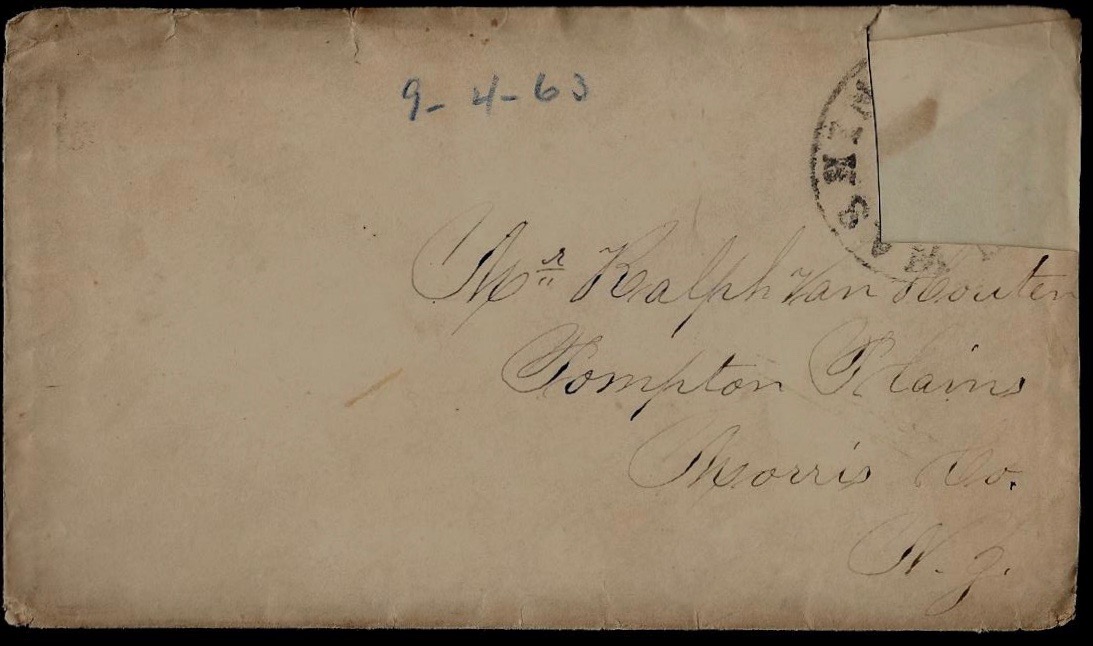 9-4-63
WASHIN
Mr Ralph Van Houten
Pompton Plains
Morris Co.
N. J.